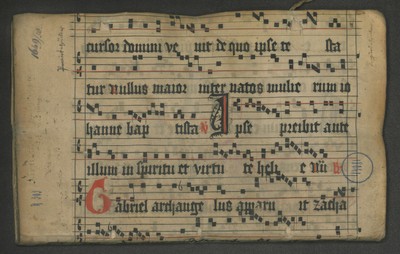 cursor domini ve nit de quo ipse te sta
tur Nullus maior inter natos mulie rum io
hanne bap tista Ipse preibit ante
illum in spiritu et virtu te heli e
Gabriel archange lus aparu it zacha